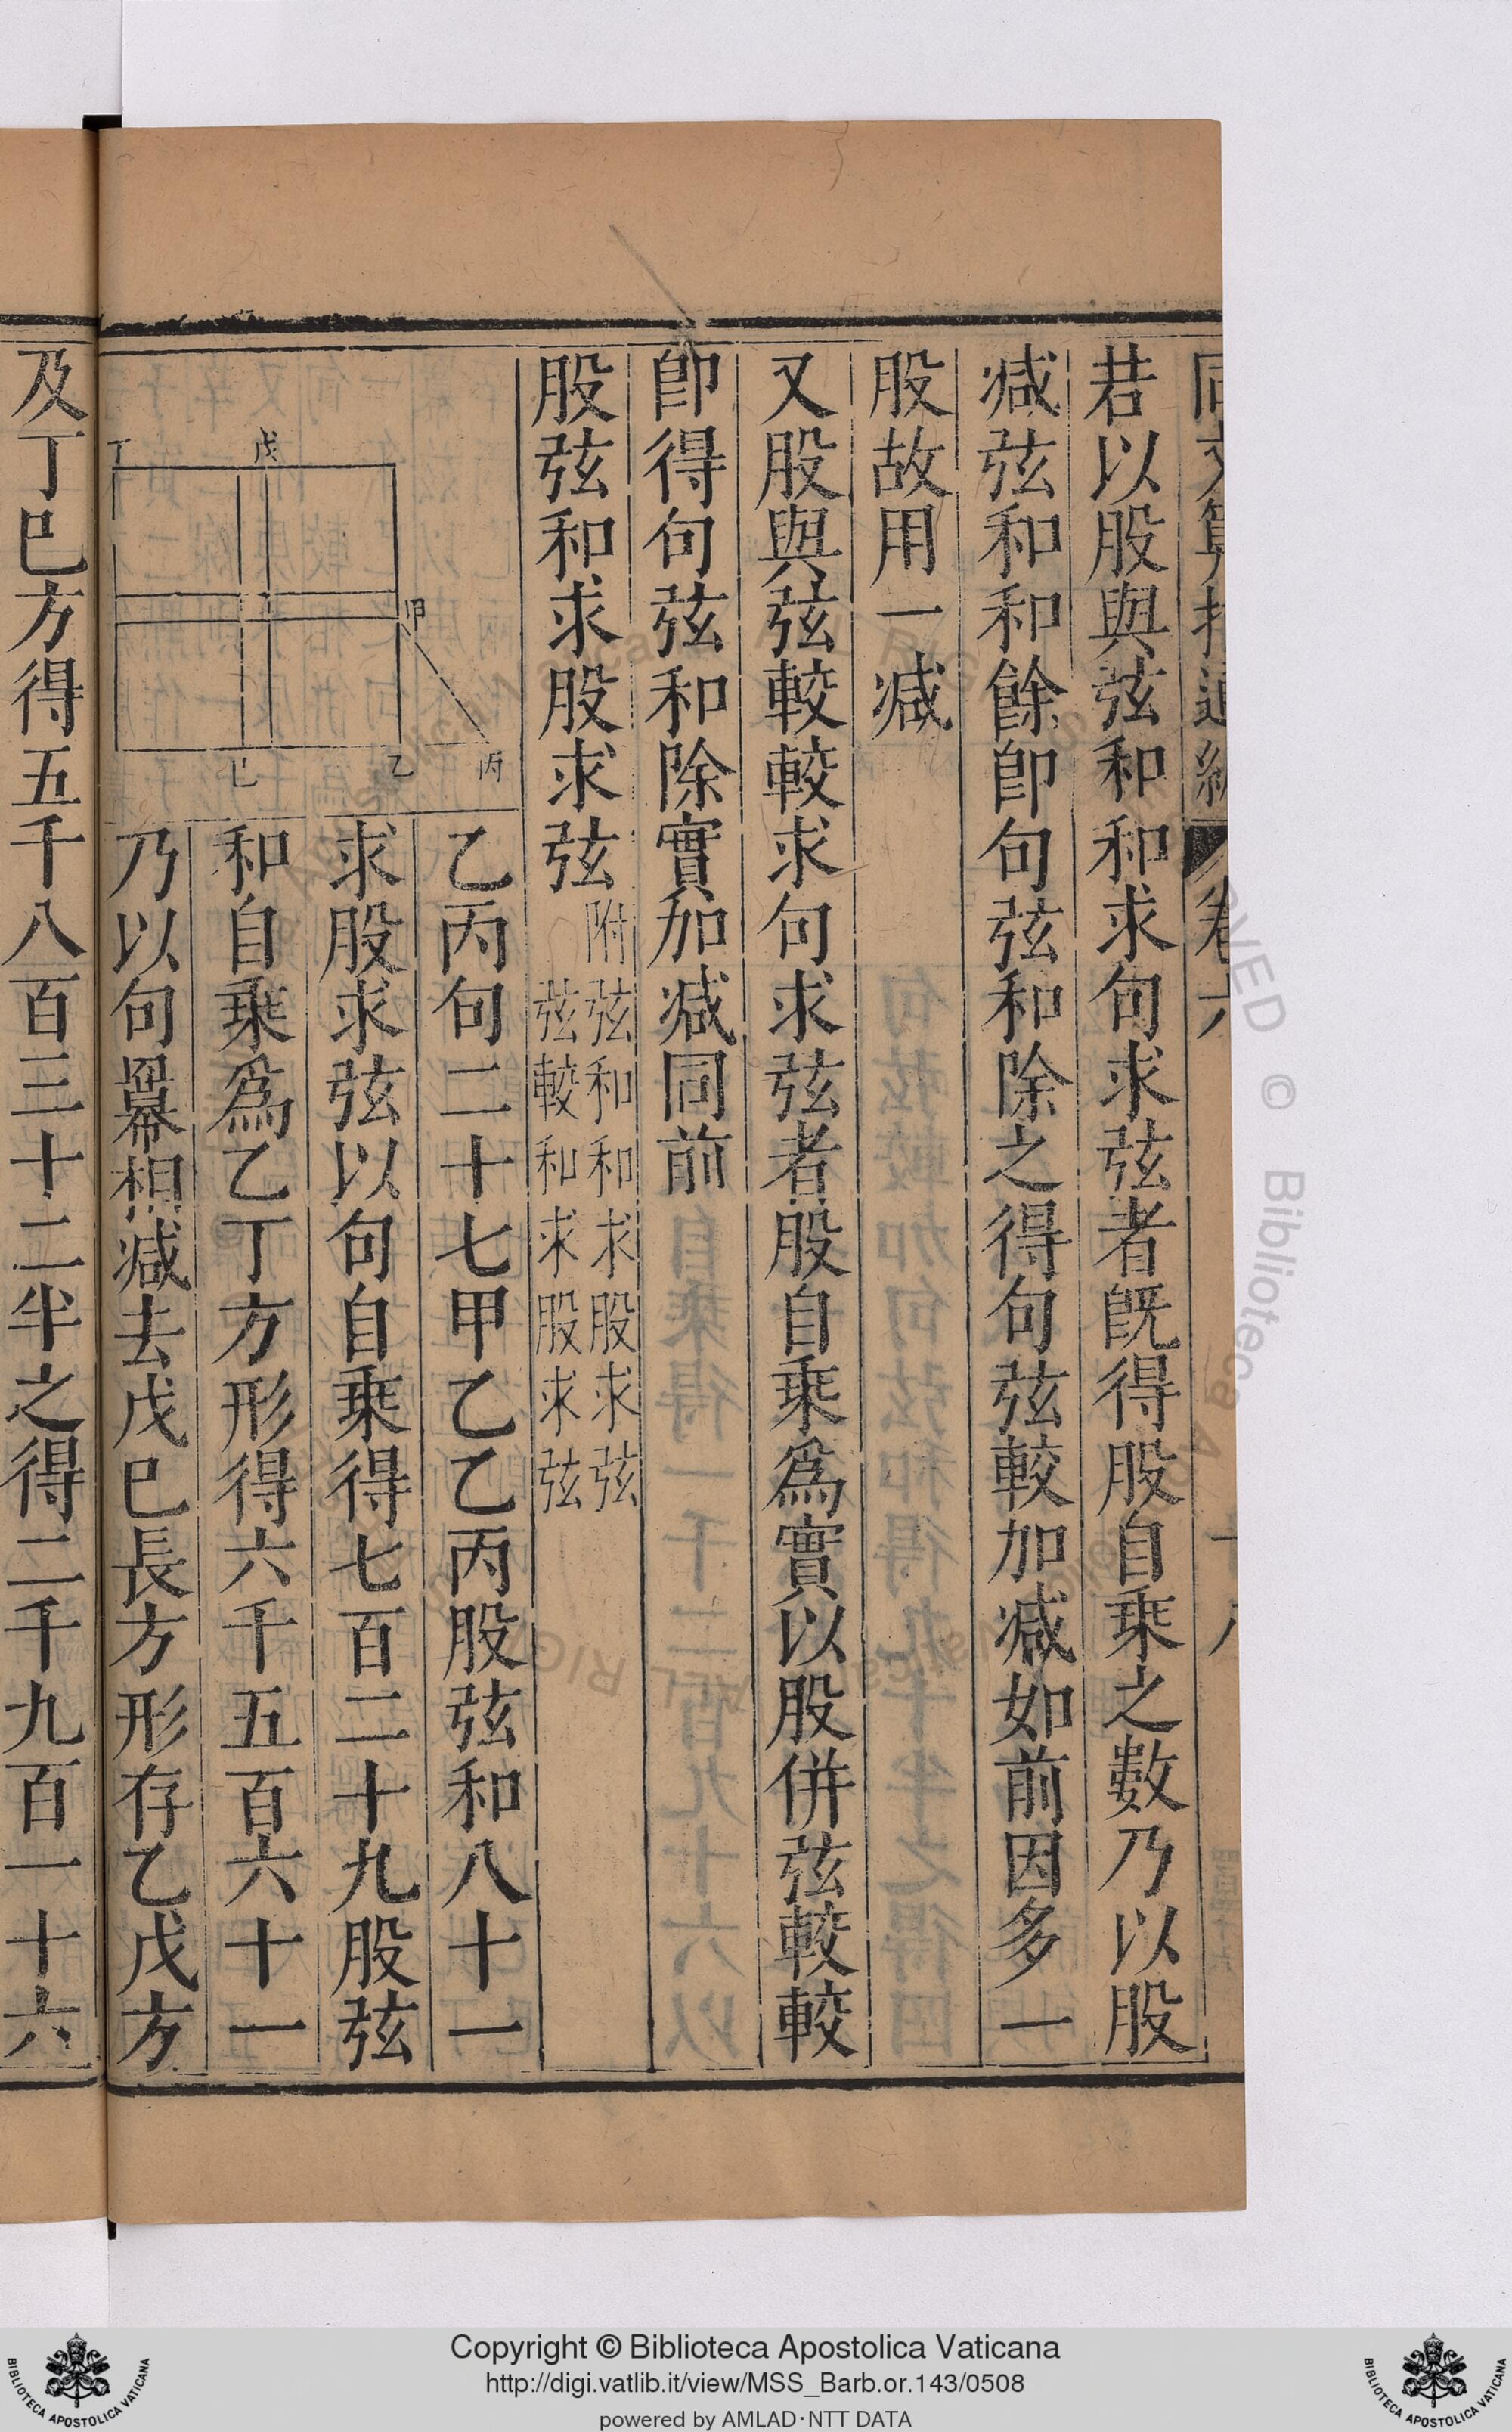 若以股與弦和和求句求弦者旣得股自乘之數乃以股
減弦和和餘卽句弦和除之得句弦較加減如前因多一
股故用一減
又股與弦較較求句求弦者股自乘爲實以股併弦較較
卽得句弦和除實加減同前
股弦和求股求弦
附弦和和求股求弦
弦較和求股求弦
丁 戊
甲
己 乙 丙
乙丙句二十七甲乙乙丙股弦和八十一
求股求弦以句自乘得七百二十九股弦
和自乘爲乙丁方形得六千五百六十一
乃以句羃相減去戊巳長方形存乙戊方
及丁巳方得五千八百三十二半之得二千九百一十六
Copyright © Biblioteca Apostolica Vaticana
http://digi.vatlib.it/view/MSS_Barb.or.143/0508
powered by AMLAD·NTT DATA
BIBLIOTECA APOSTOLICA VATICANA
BIBLIOTECA APOSTOLICA VATICANA